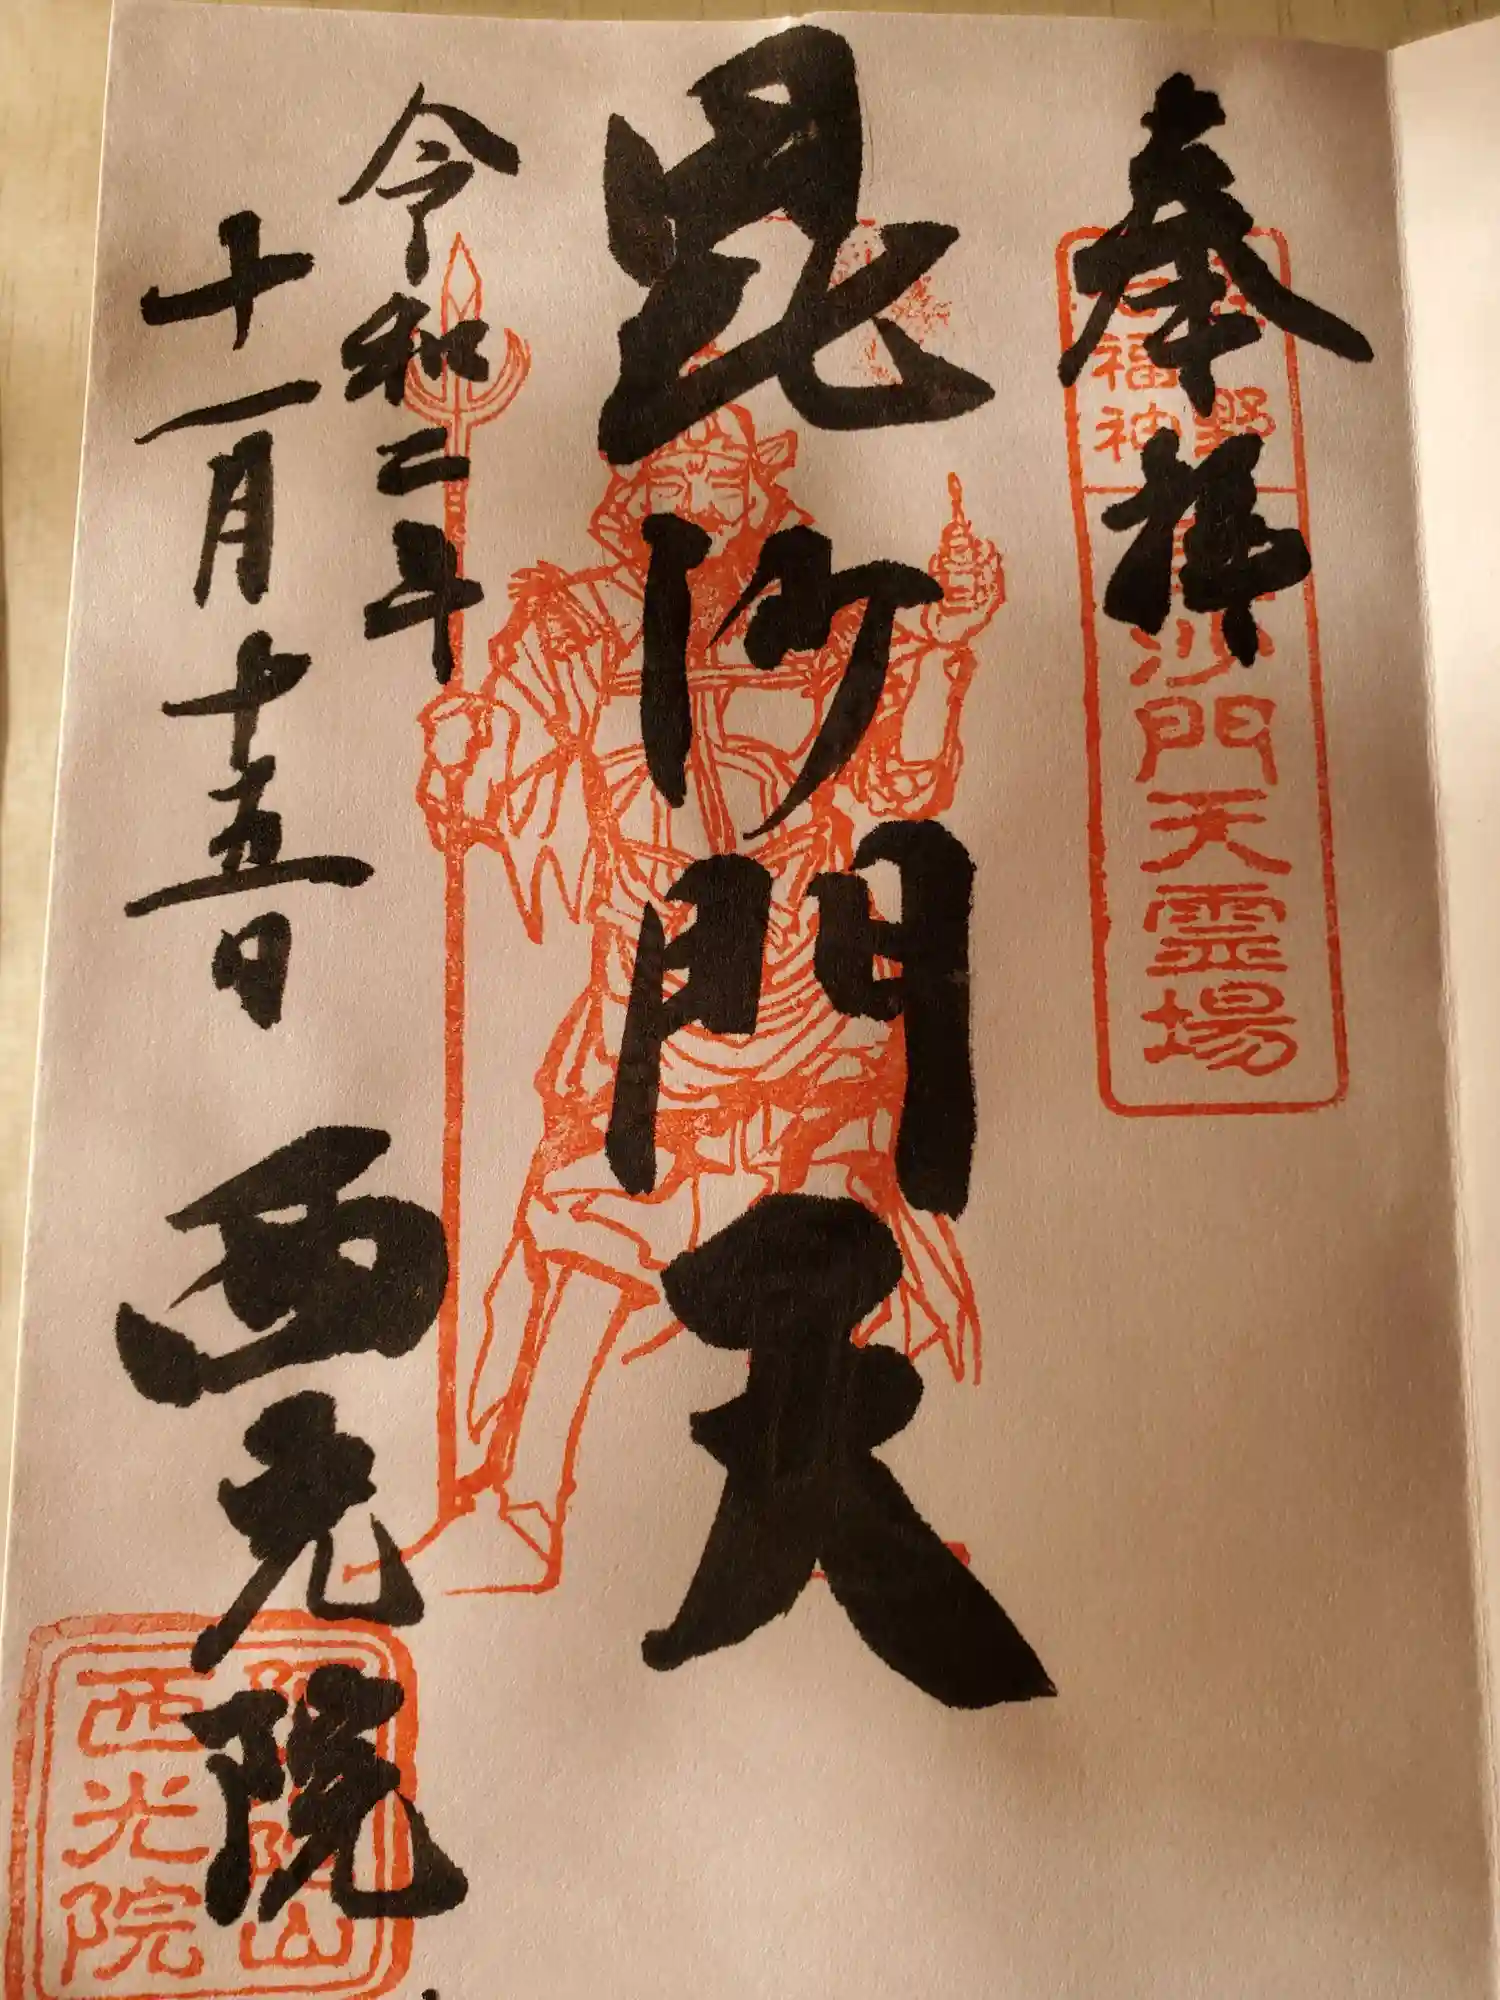 奉拝
七福神
沙門天霊場
毘沙門天
令和二年
十一月十五日
西光院
西光院